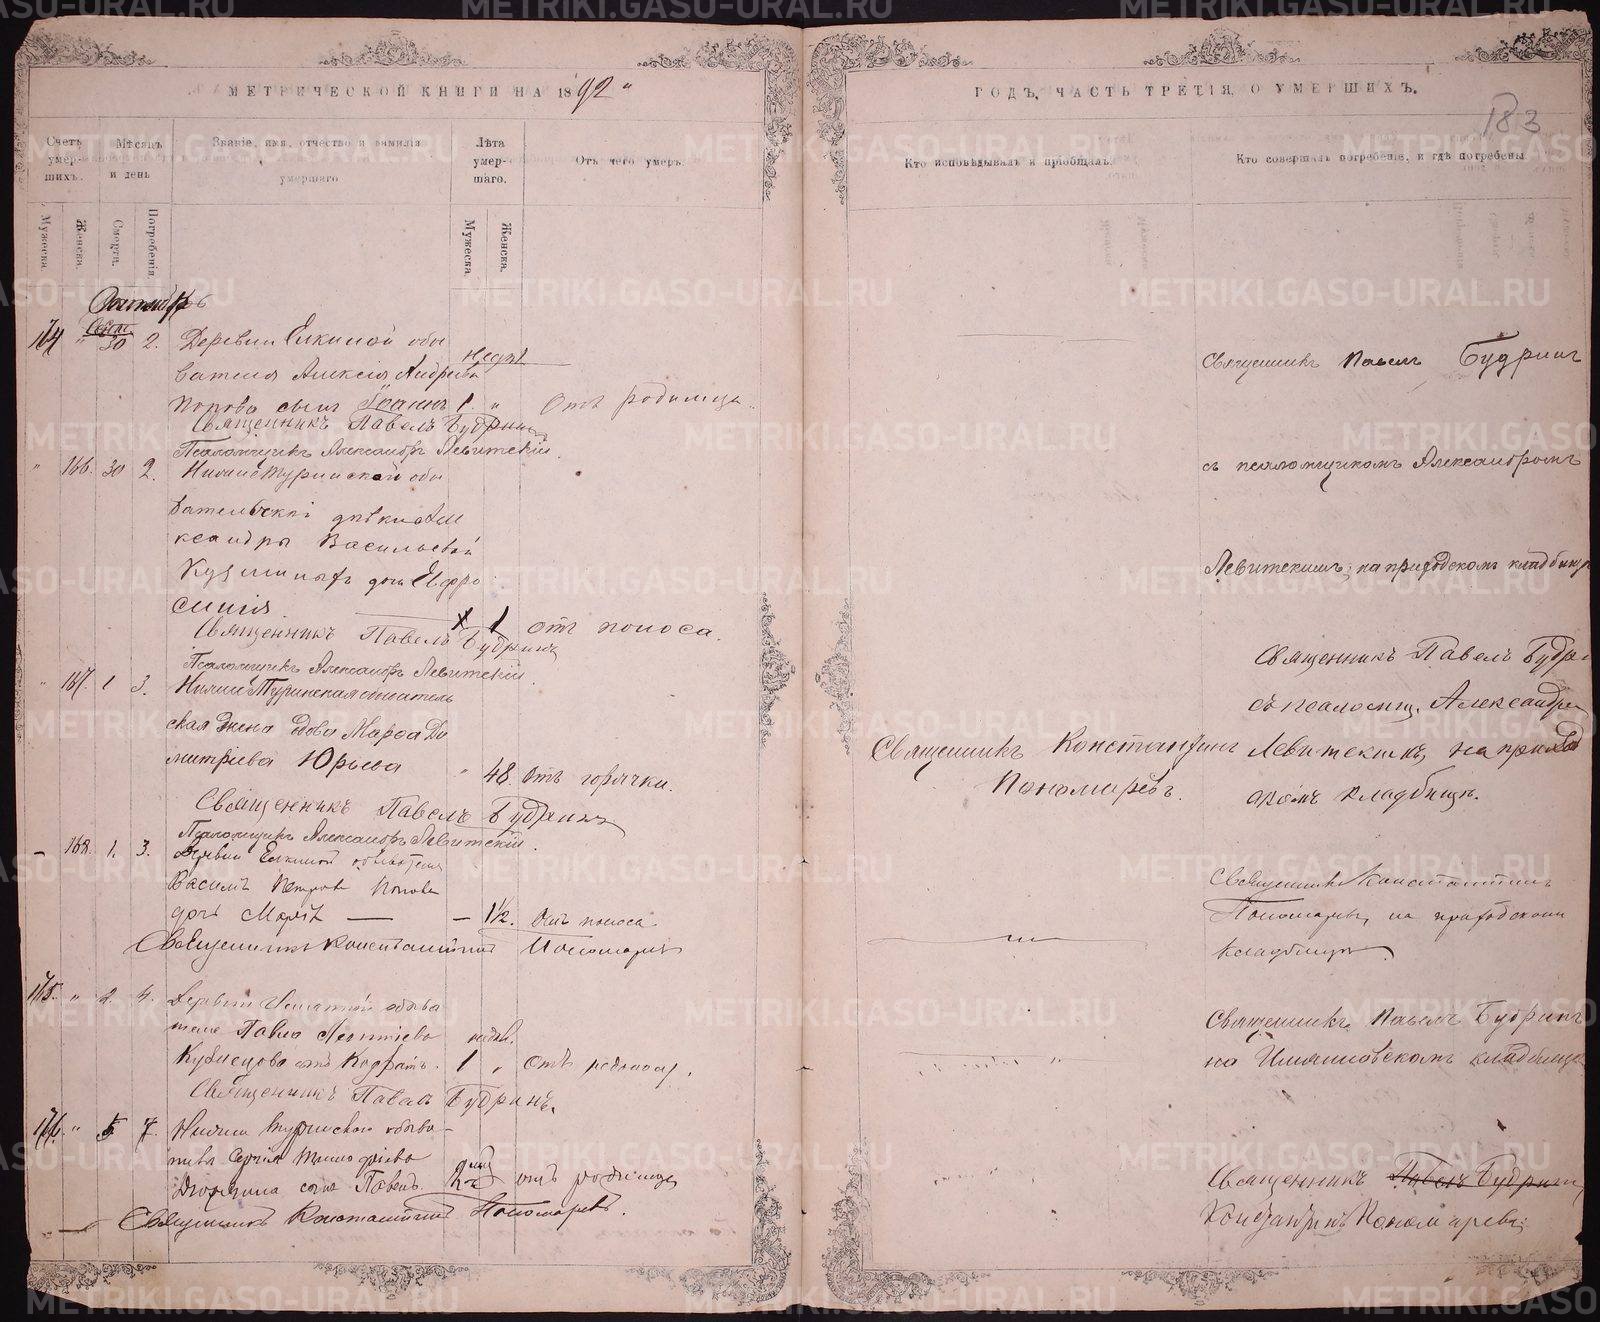 МЕТРИЧЕСКОЙ КНИГИ НА 1892
Счетъ умершихъ.
Мѣсяцъ и день
Званіе, имя, отчество и фамилія умершаго
Лѣта умершаго.
Отъ чего умеръ.
Мужеска.
Женска.
Смерти.
Погребенія.
Мужеска.
Женска.
164 " 30 2. Деревни Елкиной обы
вателя Алексія Андреева
Попова сынъ Іоаннъ 1. " Отъ родимца
Священникъ Павелъ Будринъ
Псаломщикъ Александръ Левитскій.
" 166. 30 2. Нижнетуринской обы
вательской дѣвки Але
ксандры Васильевой
дочь Евфро
синія 1 отъ поноса.
Священникъ Павелъ Будринъ
Псаломщикъ Александръ Левитскій.
" 167. 1 3. Нижне Туринская обыватель
ская жена вдова Марѳа Ди
митріева Юрьева " 48. Отъ горячки.
Священникъ Павелъ Будринъ
Псаломщикъ Александръ Левитскій.
— 168. 1. 3. Деревни Елкиной обывателя
Василія Петрова Попова
дочь Марія — — 1½. Отъ поноса.
Священникъ Константинъ Пономаревъ
175. " 2. 4. Деревни обыва
теля Павла Леонтіева
Кузнецова сынъ Кодратъ. 1 " Отъ
Священникъ Павелъ Будринъ.
176. " 5 7. Нижне Туринскаго обыва–
теля Сергія Тимофѣева
сынъ Павелъ. отъ родимца
Священникъ Константинъ Пономаревъ.
ГОДЪ, ЧАСТЬ ТРЕТІЯ, О УМЕРШИХЪ.
183
Кто исповѣдывалъ и пріобщалъ.
Кто совершалъ погребеніе, и гдѣ погребены
Священникъ Павелъ Будринъ
съ псаломщикомъ Александромъ
Левитскимъ, на приходскомъ кладбищѣ
Священникъ Павелъ Будри
съ псаломщ. Александро
Священникъ Константинъ Левитскимъ, на приход
Пономаревъ. скомъ кладбищѣ.
Священникъ Константинъ
Пономаревъ, на приходскомъ
кладбищѣ
Священникъ Павелъ Будринъ
на кладбищѣ
Священникъ Павелъ Будринъ
Константинъ Пономаревъ
METRIKI.GASO-URAL.RU